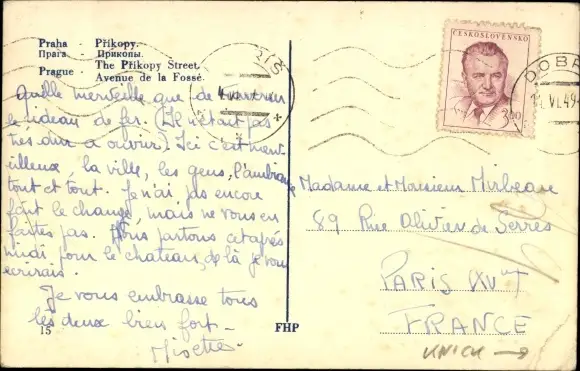 Praha - Příkopy.
Прага - Прикопы.
Prague - The Příkopy Street.
Avenue de la Fossé.
ČESKOSLOVENSKO
3Kčs
DOBŘ
VI.49
Quelle merveille que de traverser
le rideau de fer. (Il n'était pas
très dur à ouvrir) Ici c'est merv-
eilleux, la ville, les gens, l'ambiance
tout et tout. Je n'ai pas encore
fait le change, mais ne vous en
faites pas. Nous partons cet après
midi pour le chateau, de là je vous
écrirais.
Je vous embrasse tous
les deux bien fort -
Madame et Monsieur Mirbeau
89 Rue Olivier de Serres
PARIS XVme
FRANCE
KNICK →
15
FHP